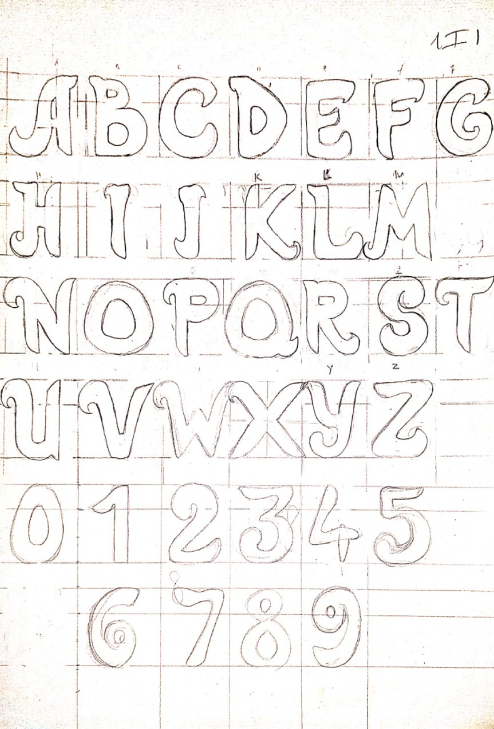 ABCDEFG
HIJKLM
NOPQRST
UVWXYZ
012345
6789